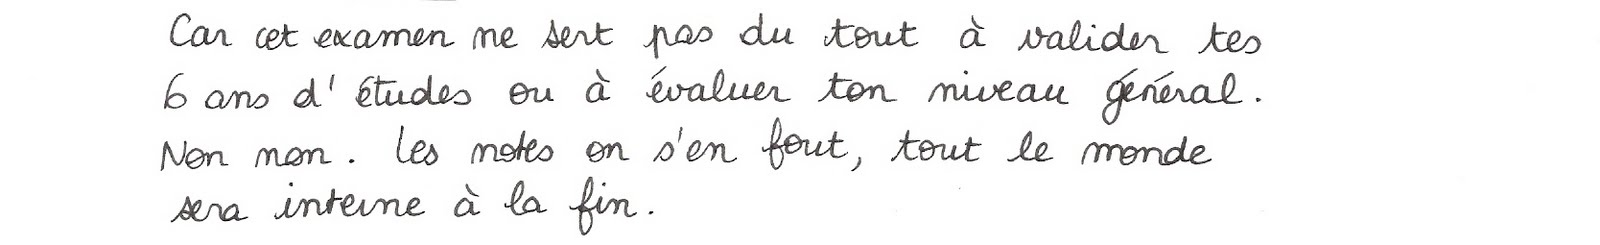 Car cet examen ne sert pas du tout à valider tes
6 ans d'études ou à évaluer ton niveau général.
Non non. Les notes on s'en fout, tout le monde
sera interne à la fin.